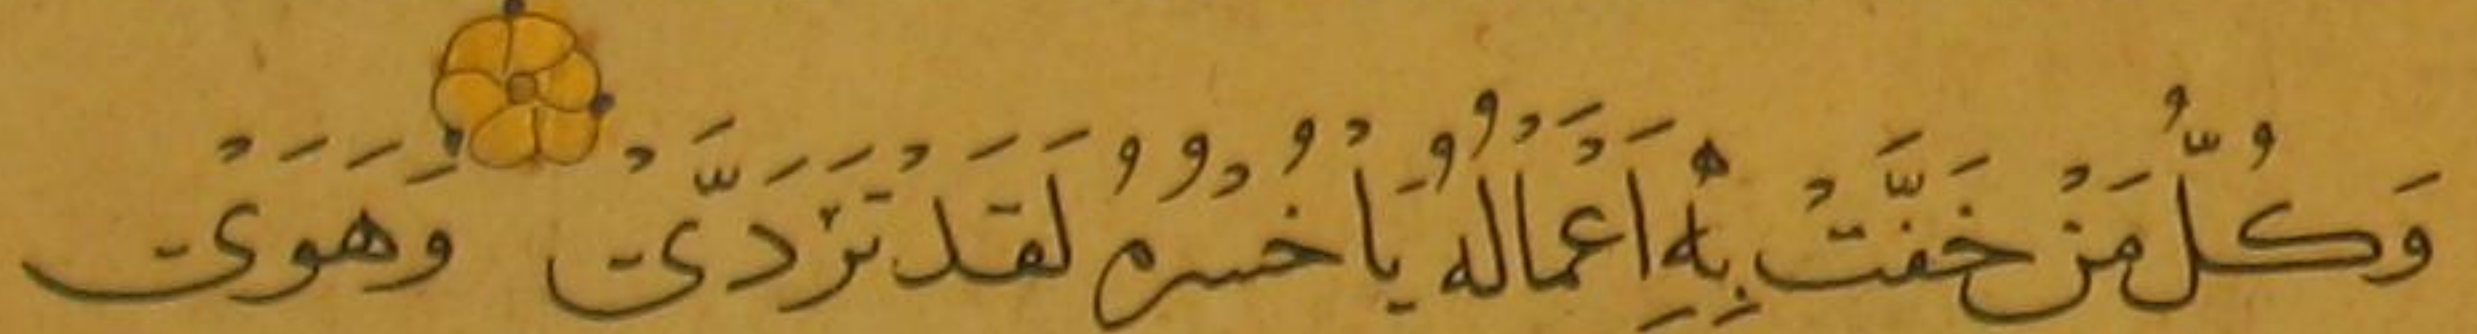 وَكُلُّ مَنْ خَفَّتْ بِهِ أَعْمَالُهُ يَا خُسْرُهُ لَقَدْ تَرَدَّىْ وَهَوَىْ